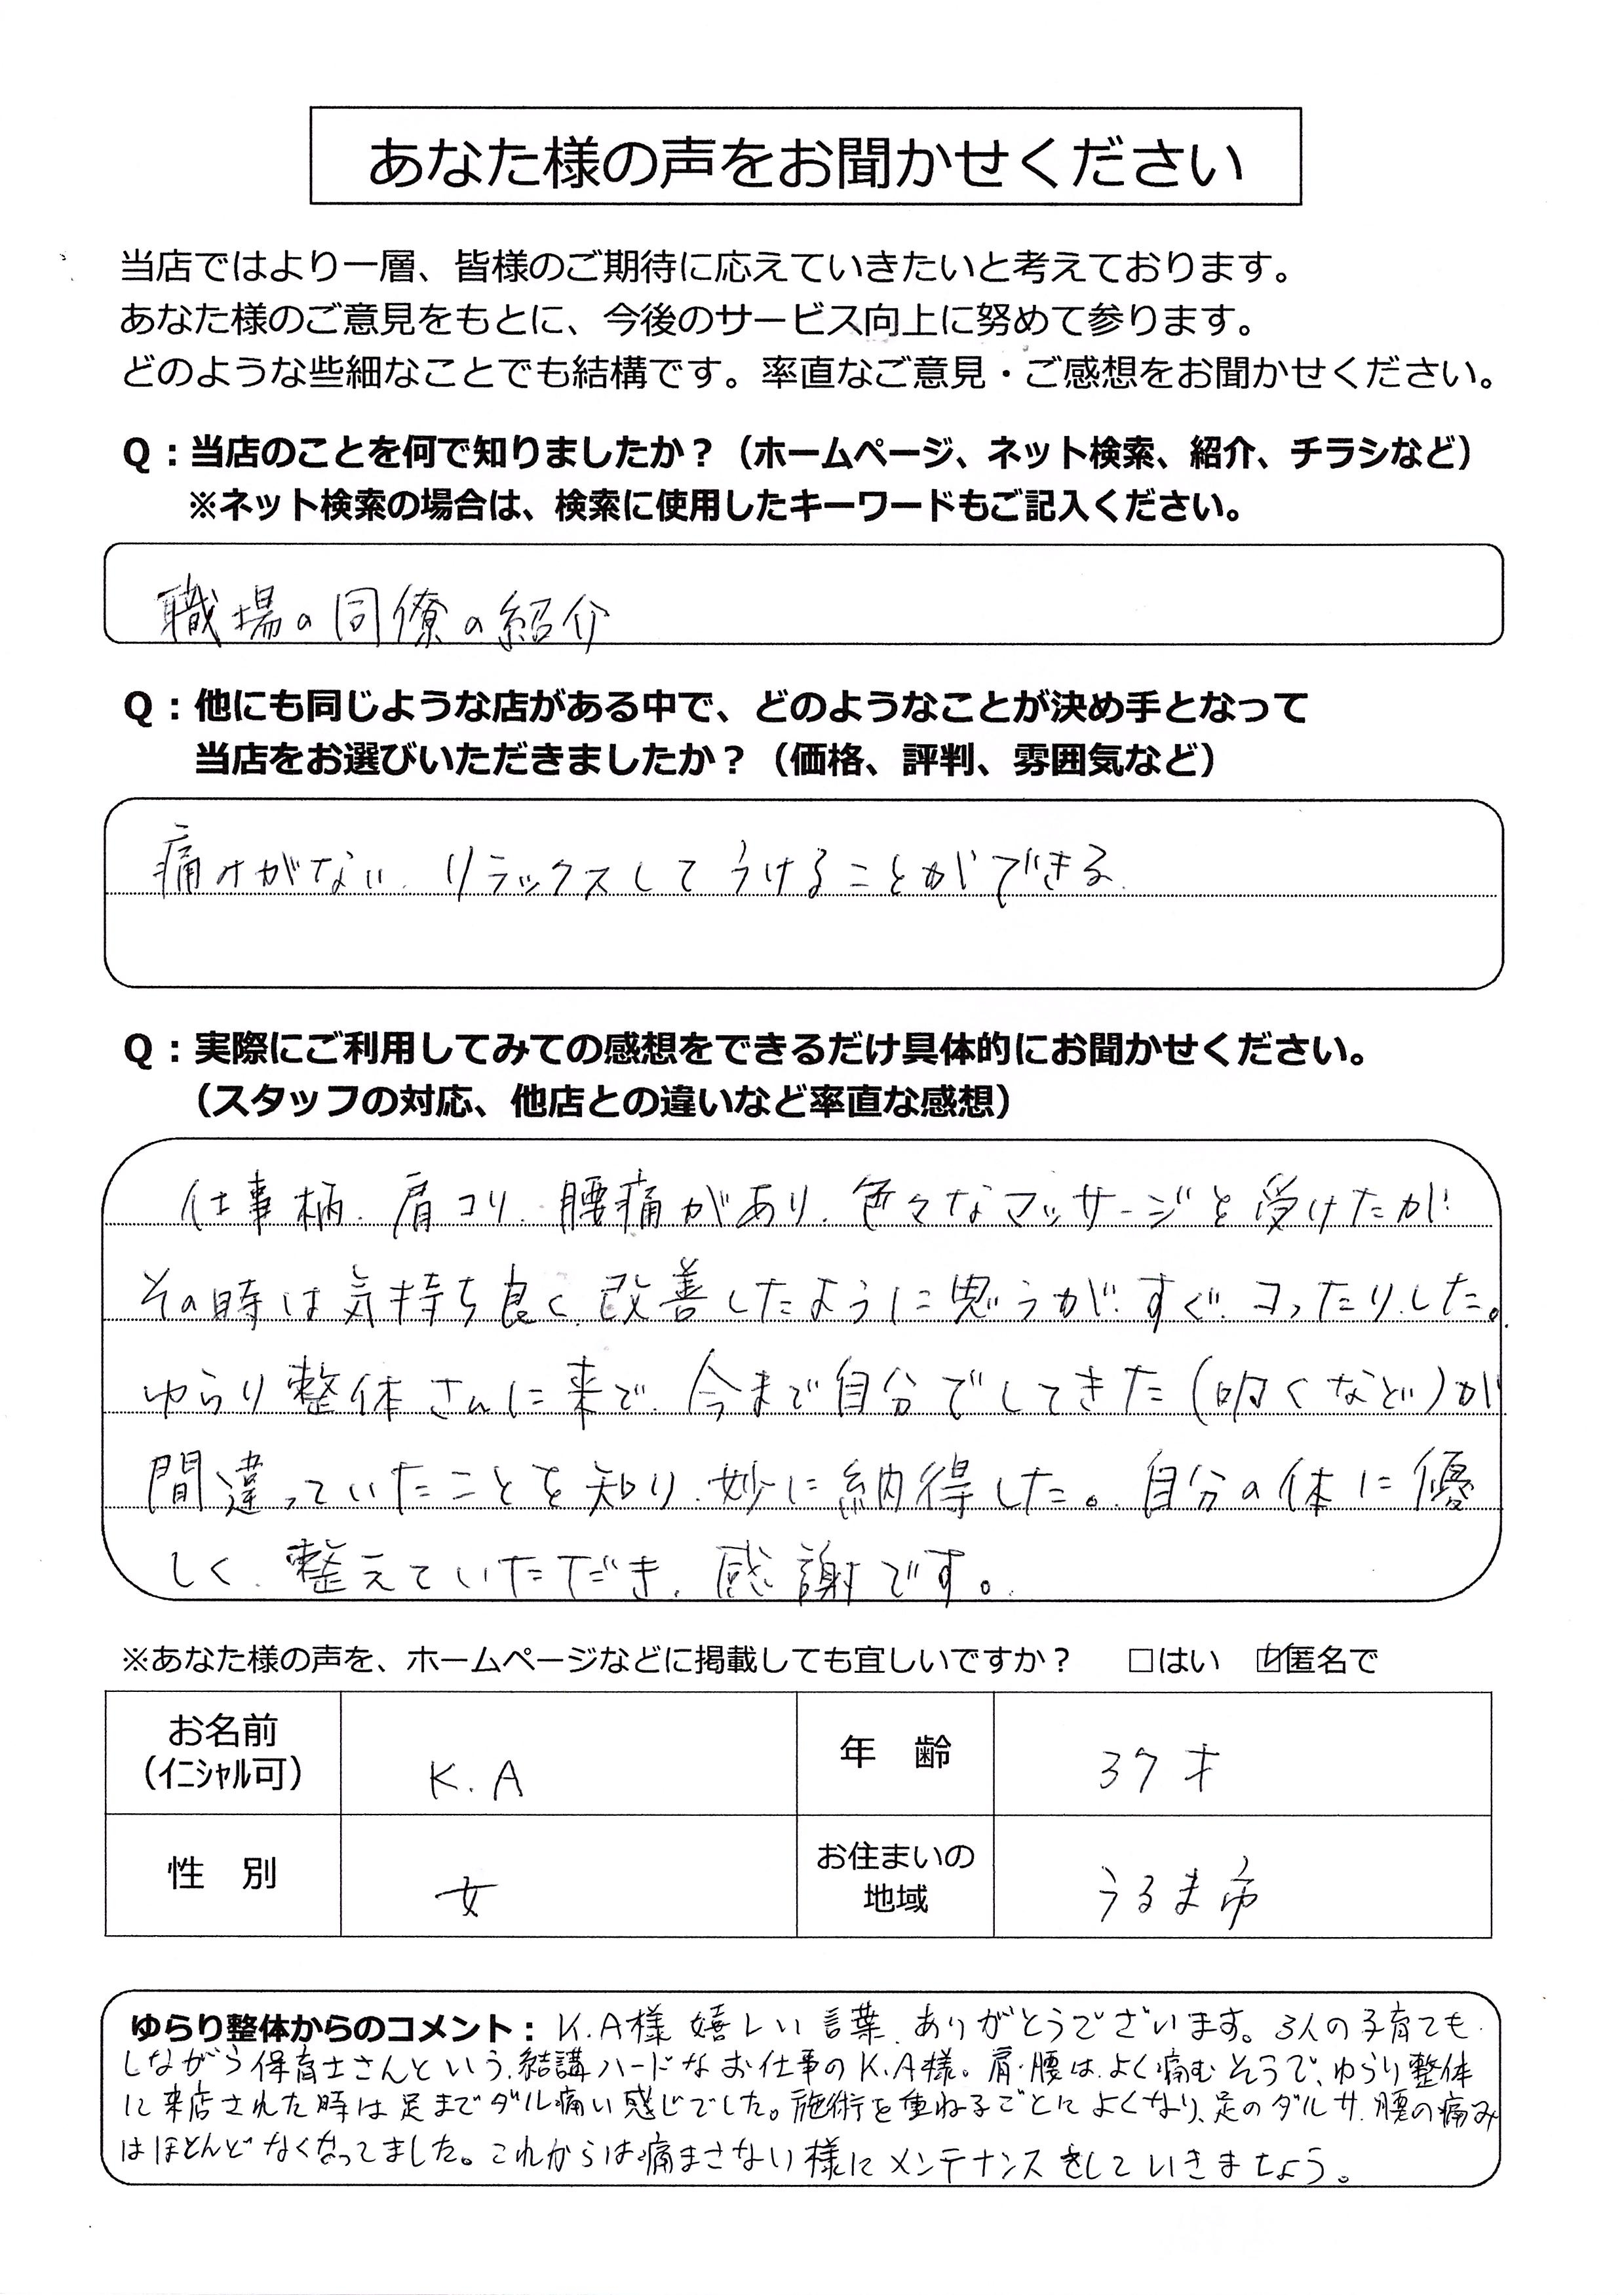 あなた様の声をお聞かせください
当店ではより一層、皆様のご期待に応えていきたいと考えております。
あなた様のご意見をもとに、今後のサービス向上に努めて参ります。
どのような些細なことでも結構です。率直なご意見・ご感想をお聞かせください。
Q：当店のことを何で知りましたか？（ホームページ、ネット検索、紹介、チラシなど）
※ネット検索の場合は、検索に使用したキーワードもご記入ください。
職場の同僚の紹介
Q：他にも同じような店がある中で、どのようなことが決め手となって
当店をお選びいただきましたか？（価格、評判、雰囲気など）
痛みがない、リラックスしてうけることができる
Q：実際にご利用してみての感想をできるだけ具体的にお聞かせください。
（スタッフの対応、他店との違いなど率直な感想）
仕事柄、肩コリ、腰痛があり、色々なマッサージを受けたが
その時は気持ち良く、改善したように思うが、すぐ、コったりした。
ゆらり整体さんに来て、今まで自分でしてきた（叩くなど）が
間違っていたことを知り、妙に納得した。自分の体に優
しく、整えていただき、感謝です。
※あなた様の声を、ホームページなどに掲載しても宜しいですか？ □はい ☑匿名で
お名前 K.A 年 齢 37才
（ｲﾆｼｬﾙ可）
性 別 女 お住まいの うるま市
地域
ゆらり整体からのコメント：K.A様 嬉しい言葉、ありがとうございます。3人の子育ても
しながら保育士さんという、結講ハードなお仕事のK.A様。肩・腰は、よく痛むそうで、ゆらり整体
に来店された時は足までダル痛い感じでした。施術を重ねるごとによくなり、足のダルサ、腰の痛み
はほとんどなくなってました。これからは痛まさない様にメンテナンスをしていきましょう。